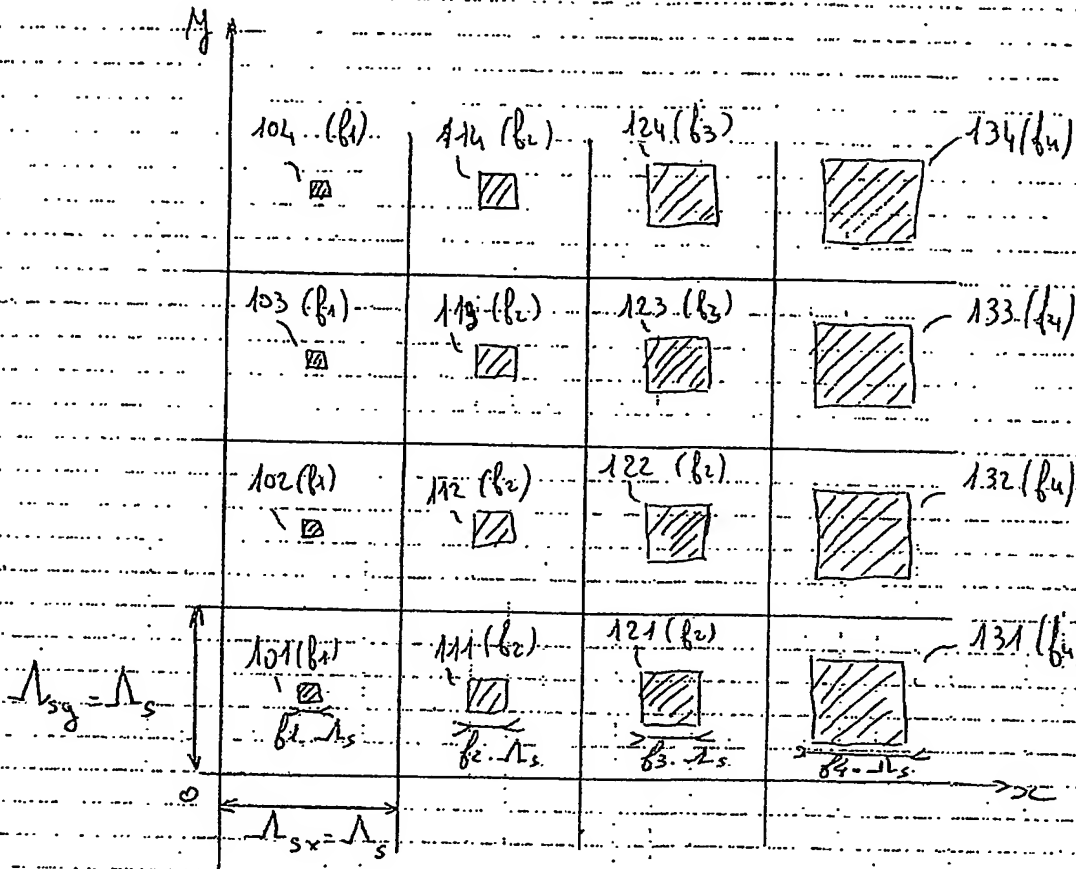 y
104 (f1) 114 (f2) 124 (f3) 134 (f4)
103 (f1) 113 (f2) 123 (f3) 133 (f4)
102 (f1) 112 (f2) 122 (f2) 132 (f4)
101 (f1) 111 (f2) 121 (f2) 131 (f4
Λsy = Λs
f1.Λs f2.Λs f3.Λs f4.Λs
0 x
Λsx = Λs